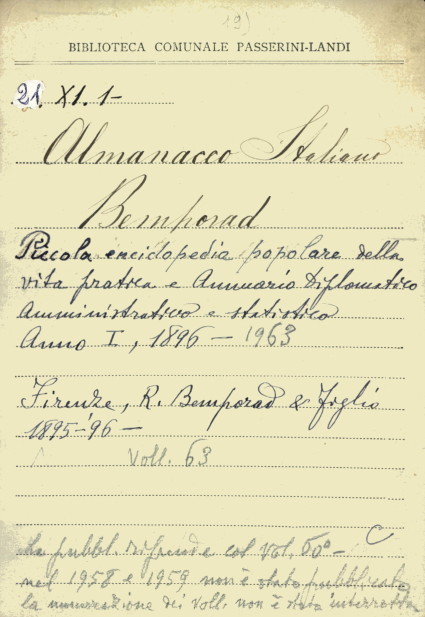 19)
BIBLIOTECA COMUNALE PASSERINI-LANDI
21. XI. 1-
Almanacco Italiano
Bemporad
Piccola enciclopedia popolare della
vita pratica e Annuario Diplomatico
Amministrativo e statistico
Anno I, 1896 - 1963
Firenze, R. Bemporad & Figlio
1895-96 -
Voll. 63
C
La pubbl. riprende col vol. 60° -
nel 1958 e 1959 non è stato pubblicato
la numerazione dei voll. non è stata interrotta